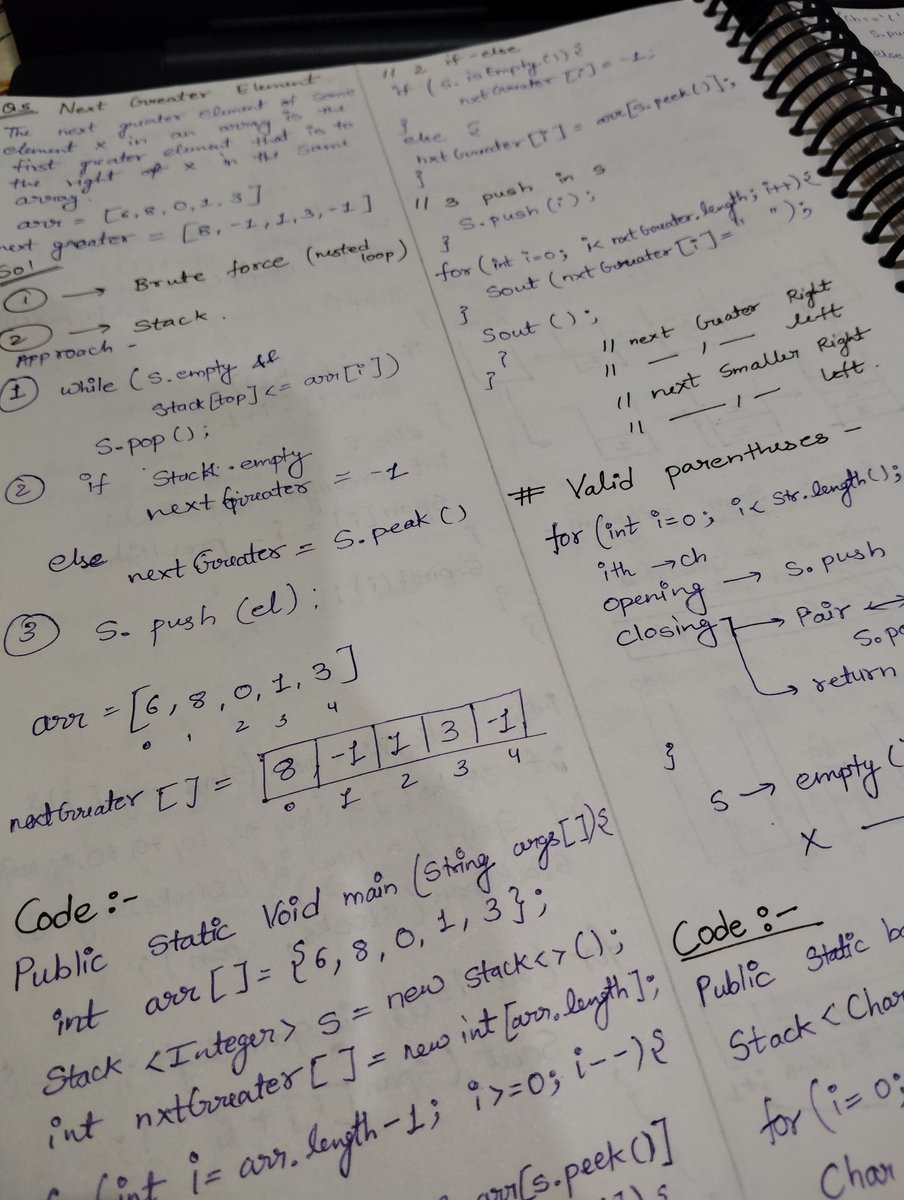 Q5 Next Greater Element.
The next greater element of some
element x in an array is the
first greater element that is to
the right of x in the same
array.
arr = [6, 8, 0, 1, 3]
next greater = [8, -1, 1, 3, -1]
Sol
① → Brute force (nested loop)
② → Stack.
Approach -
① while (S.empty &&
Stack[top] <= arr[i])
S.pop();
② if Stack.empty
next Greater = -1
else
next Greater = S.peak()
③ S. push (el);
arr = [6, 8, 0, 1, 3]
0 1 2 3 4
nextGreater [] = 8 -1 1 3 -1
0 1 2 3 4
Code :-
Public Static Void main (String args[]){
int arr [] = {6, 8, 0, 1, 3};
Stack <Integer> S = new Stack<>();
int nxtGreater [] = new int [arr.length];
(int i = arr.length-1; i>=0; i--){
arr[s.peek()]
// 2 if-else
if (s.isEmpty()){
nxtGreater [i] = -1;
}
else {
nxtGreater [i] = arr[s.peek()];
}
// 3 push in s
S.push (i);
}
for (int i=0; i< nxtGreater.length; i++){
Sout (nxtGreater[i]= " ");
}
Sout ();
}
}
// next Greater Right
// — , — left
// next Smaller Right
// — , — left.
# Valid parentheses -
for (int i=0; i< Str.length();
ith → ch
opening → S.push
closing → Pair ↔
S.po
→ return
}
S → empty (
X —
Code :-
Public Static bo
Stack < Char
for (i= 0;
Char